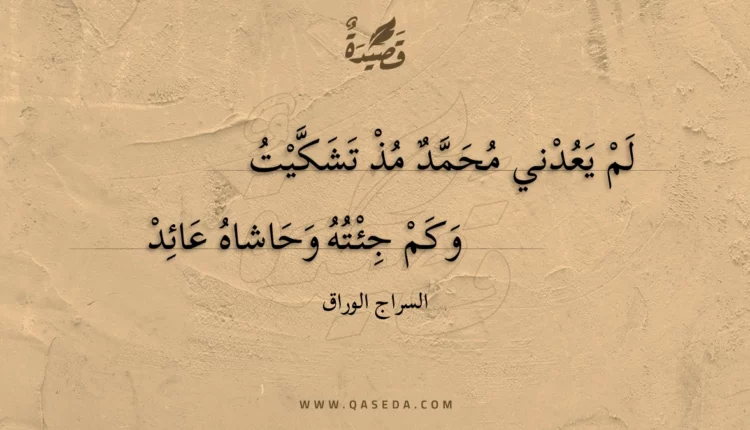 قَصِيْدَةٌ
لَمْ يَعُدْني مُحَمَّدٌ مُذْ تَشَكَّيْتُ
وَكَمْ جِئْتُهُ وَحَاشاهُ عَائِدْ
السراج الوراق
WWW.QASEDA.COM